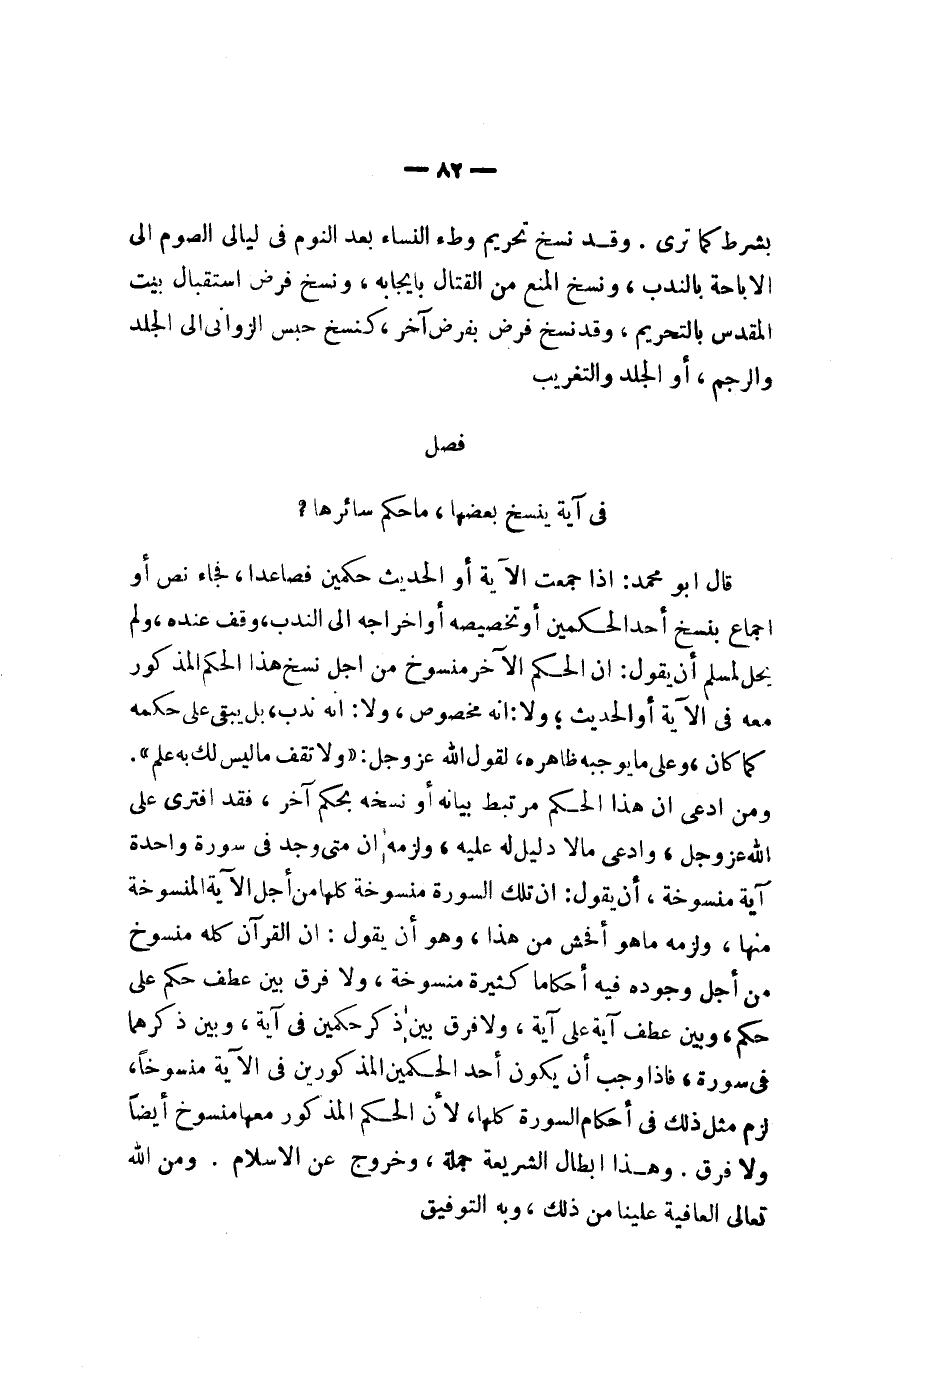 — ٨٢ —
بشرط كما ترى . وقد نسخ تحريم وطء النساء بعد النوم فى ليالى الصوم الى
الاباحة بالندب ، ونسخ المنع من القتال بايجابه ، ونسخ فرض استقبال بيت
المقدس بالتحريم ، وقد نسخ فرض بفرض آخر ، كنسخ حبس الزوانى الى الجلد
والرجم ، أو الجلد والتغريب
فصل
فى آية ينسخ بعضها ، ما حكم سائرها ؟
قال ابو محمد: اذا جمعت الآية أو الحديث حكمين فصاعدا ، فجاء نص أو
اجماع بنسخ أحد الحكمين أو تخصيصه أو اخراجه الى الندب ، وقف عنده ، ولم
يحل لمسلم أن يقول: ان الحكم الآخر منسوخ من اجل نسخ هذا الحكم المذكور
معه فى الآية أو الحديث ؛ ولا: انه مخصوص ، ولا: انه ندب ، بل يبقى على حكمه
كما كان ، وعلى ما يوجبه ظاهره ، لقول الله عز وجل: «ولا تقف ما ليس لك به علم».
ومن ادعى ان هذا الحكم مرتبط بيانه أو نسخه بحكم آخر ، فقد افترى على
الله عز وجل ، وادعى مالا دليل له عليه ، ولزمه ان متى وجد فى سورة واحدة
آية منسوخة ، أن يقول: ان تلك السورة منسوخة كلها من أجل الآية المنسوخة
منها ، ولزمه ماهو أفحش من هذا ، وهو أن يقول : ان القرآن كله منسوخ
من أجل وجوده فيه أحكاما كثيرة منسوخة ، ولا فرق بين عطف حكم على
حكم ، وبين عطف آية على آية ، ولا فرق بين ذكر حكمين فى آية ، وبين ذكرهما
فى سورة ، فاذا وجب أن يكون أحد الحكمين المذكورين فى الآية منسوخاً ،
لزم مثل ذلك فى أحكام السورة كلها ، لأن الحكم المذكور معها منسوخ أيضاً
ولا فرق . وهذا ابطال الشريعة جملة ، وخروج عن الاسلام . ومن الله
تعالى العافية علينا من ذلك ، وبه التوفيق